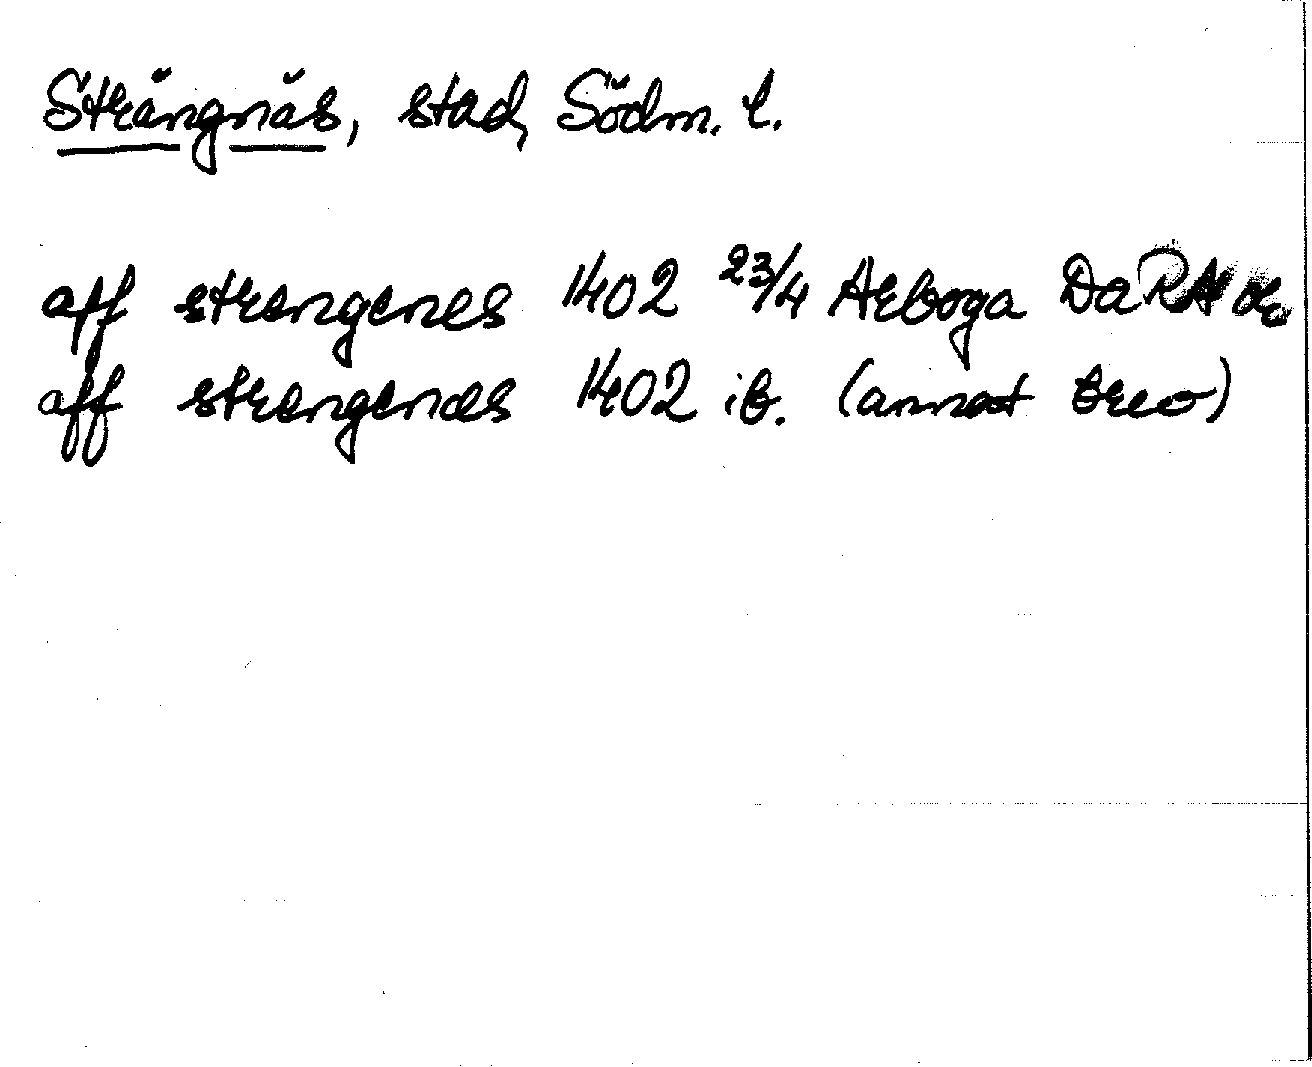 Strängnäs, stad, Södm. l.
aff strengenes 1402 23/4 Arboga Da RA
aff strengenæs 1402 ib. (annat brev)